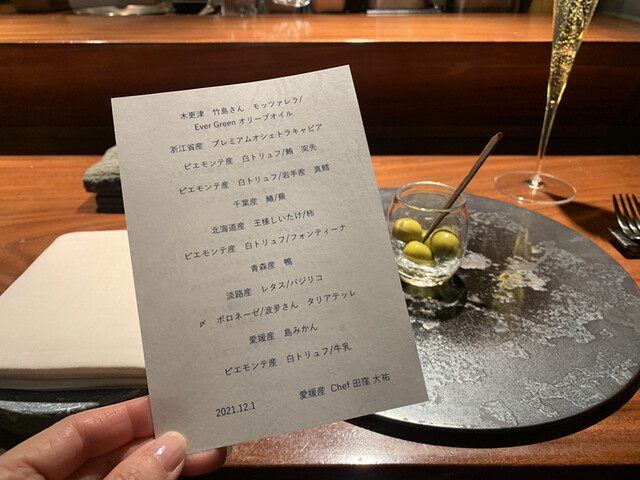 木更津 竹島さん モッツァレラ/
Ever Green オリーブオイル
浙江省産 プレミアムオシェトラキャビア
ピエモンテ産 白トリュフ/鮪 突先
ピエモンテ産 白トリュフ/岩手産 真鱈
千葉産 鰆/蕪
北海道産 王様しいたけ/柿
ピエモンテ産 白トリュフ/フォンティーナ
青森産 鴨
淡路産 レタス/バジリコ
〆 ボロネーゼ/波夛さん タリアテッレ
愛媛産 島みかん
ピエモンテ産 白トリュフ/牛乳
愛媛産 Chef 田窪 大祐
2021.12.1